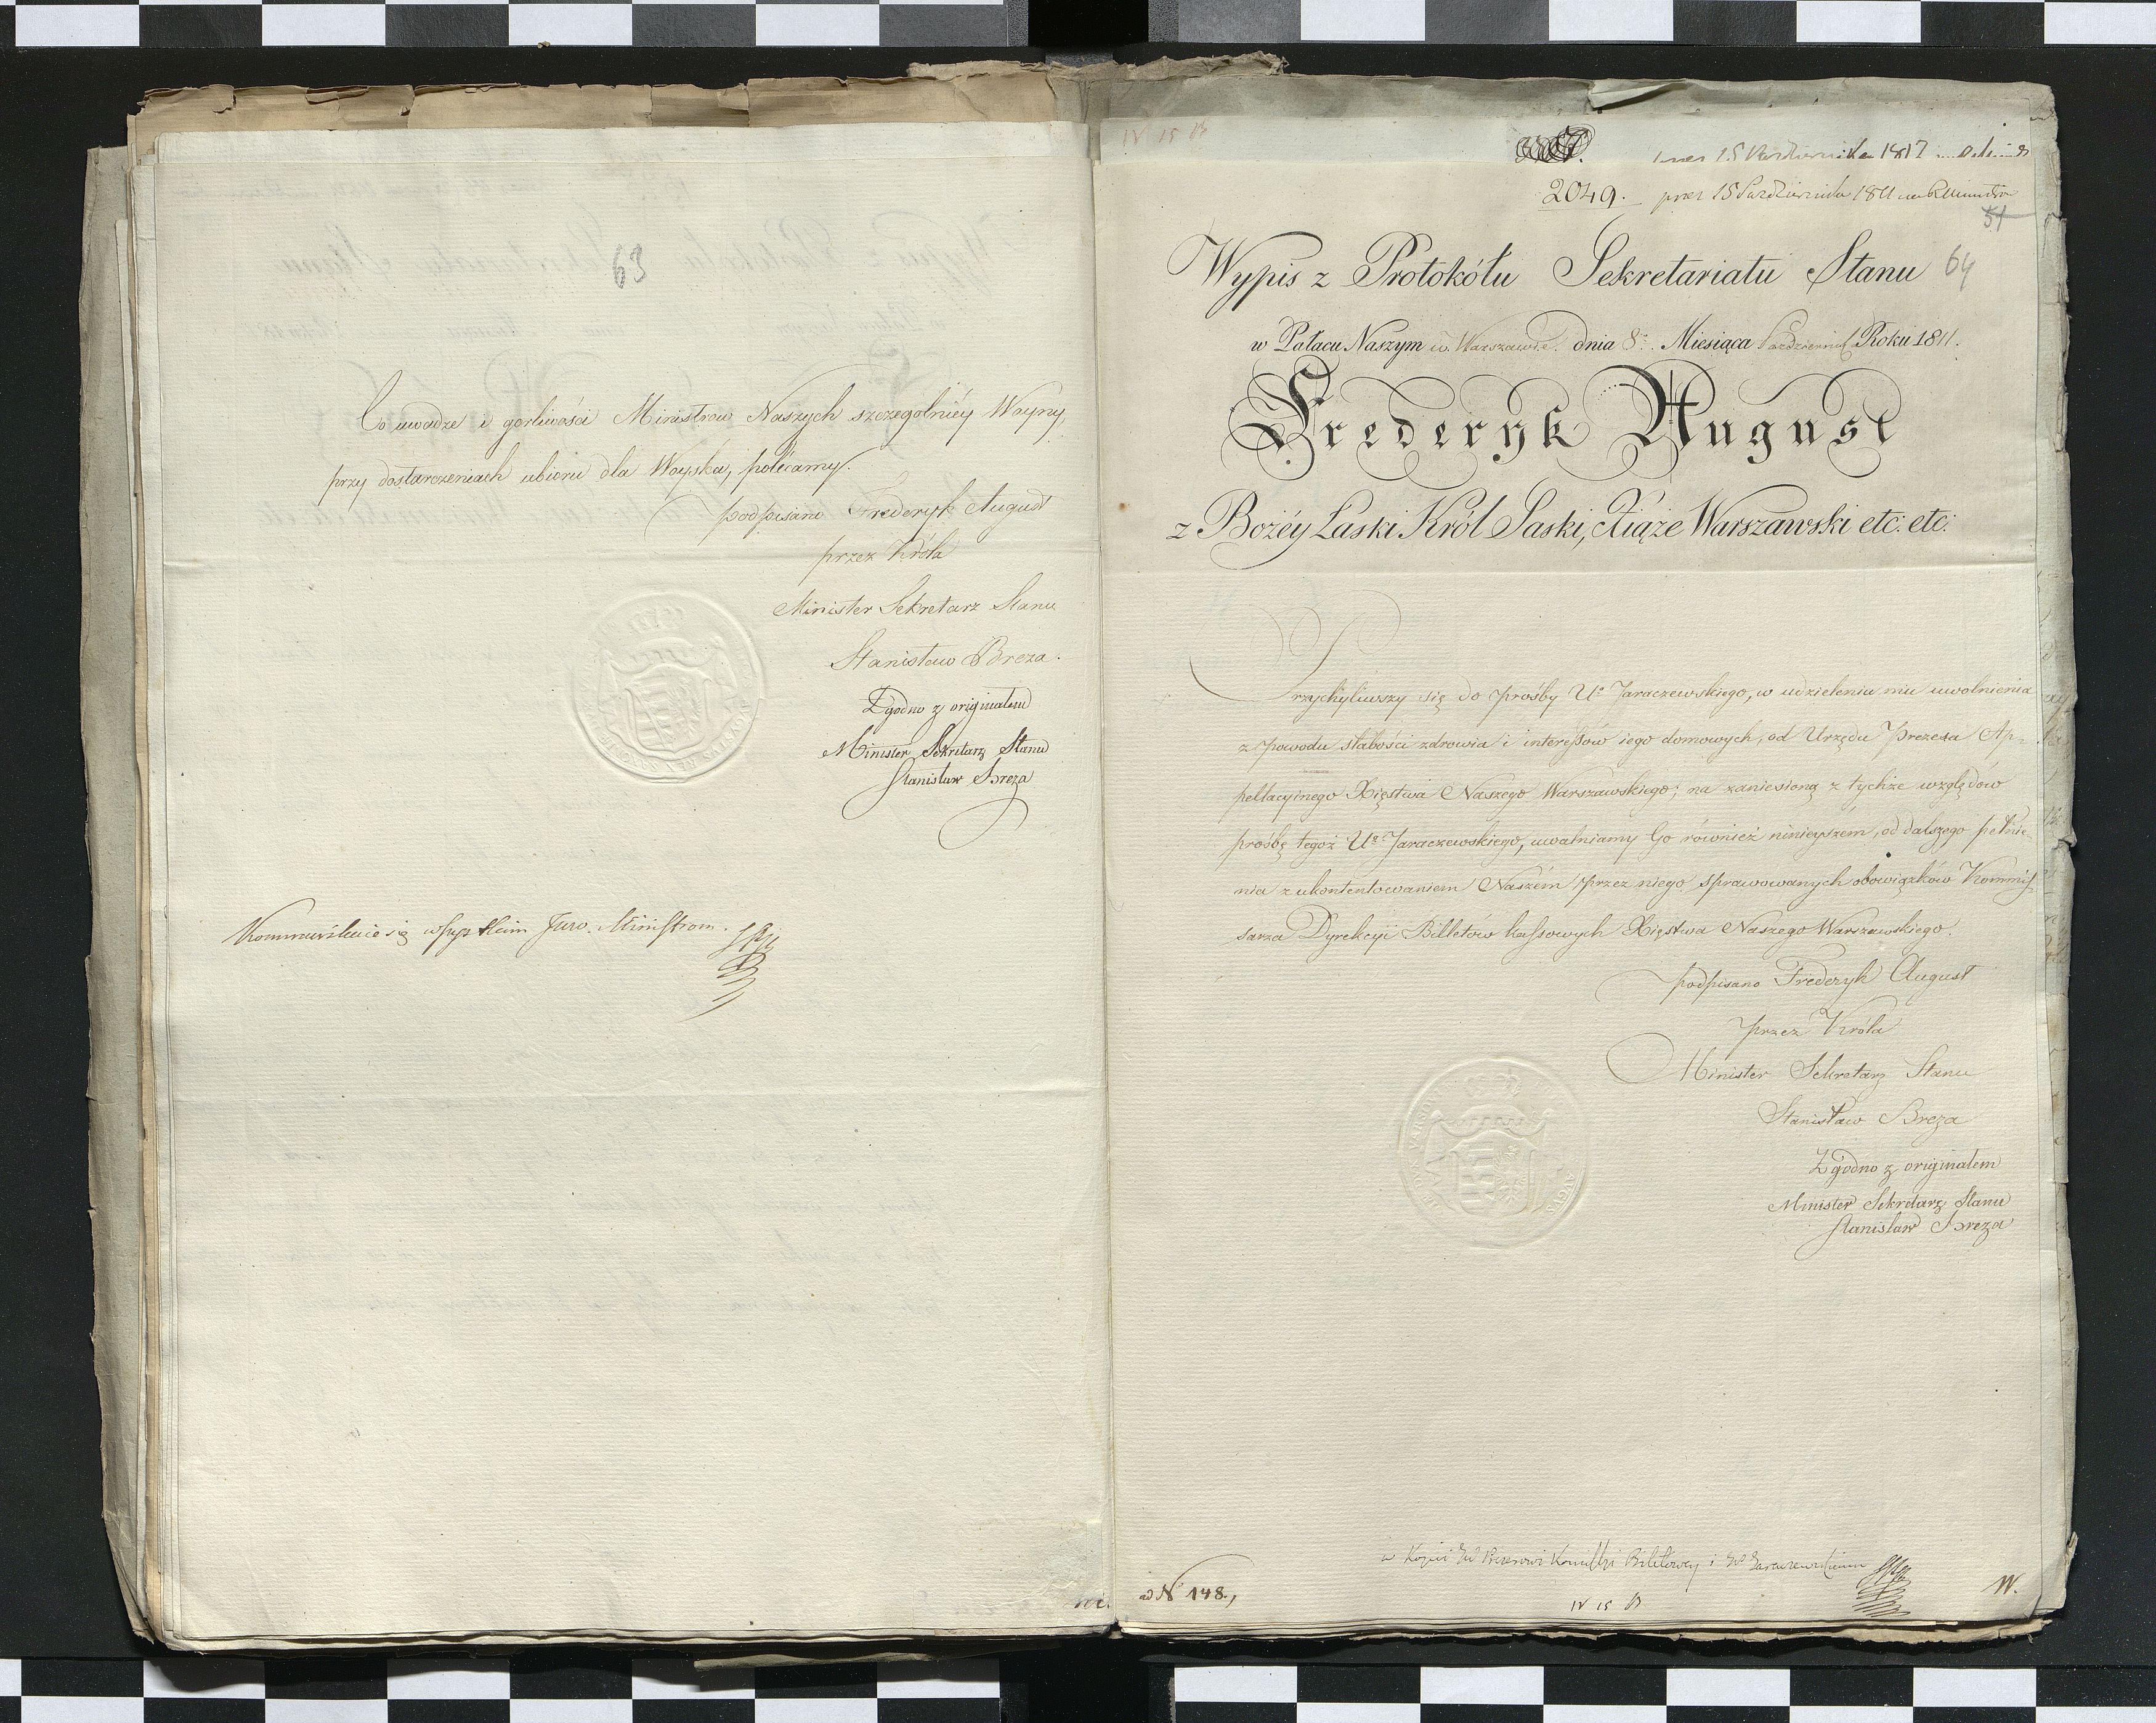 63
Co uwadze i gorliwości Ministrów Naszych szczególniéy Woyny,
przy dostarczeniach ubioru dla Woyska, polécamy.
podpisano Frederyk August
przez Króla
Minister Sekretarz Stanu
Stanisław Breza.
Zgodno z originałem
Minister Sekretarz Stanu
Stanisław Breza
się wszystkim Ministrom.
IV 15 B
15 Października 1817
2049. prez 15 Października 1811
51
Wypis z Protokółu Sekretariatu Stanu 64
w Pałacu Naszym w Warszawie dnia 8. Miesiąca Październik Roku 1811.
Frederyk August
z Bożéy Łaski Król Saski, Xiąże Warszawski etc. etc.
Przychyliwszy się do prośby Uo Jaraczewskiego, w udzieleniu mu uwolnienia
z powodu słabości zdrowia i interessów iego domowych, od Urzędu Prezesa Ap-
pellacyinego Xięstwa Naszego Warszawskiego; na zaniesioną z tychże względów
prośbę tegoż Uo Jaraczewskiego, uwalniamy Go również ninieyszém, od dalszego pełnie-
nia z ukontentowaniem Naszém przez niego sprawowanych obowiązków Kommis-
sarza Dyrekcyi Billetów kassowych Xięstwa Naszego Warszawskiego.
podpisano Frederyk August
przez Króla
Minister Sekretarz Stanu
Stanisław Breza
Zgodno z originałem
Minister Sekretarz Stanu
Stanisław Breza
w Kopii Prezesowi Komissyi Biletowey i Jaraczewskiemu
ad N 148.,
IV 15 B
W.